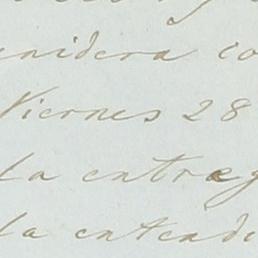 enidera co
Viernes 28
la entreg
la entend